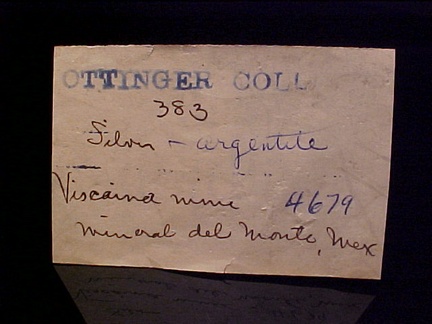 OTTINGER COLL
383
Silver - argentite
Viscaina mine 4679
Mineral del Monte, Mex